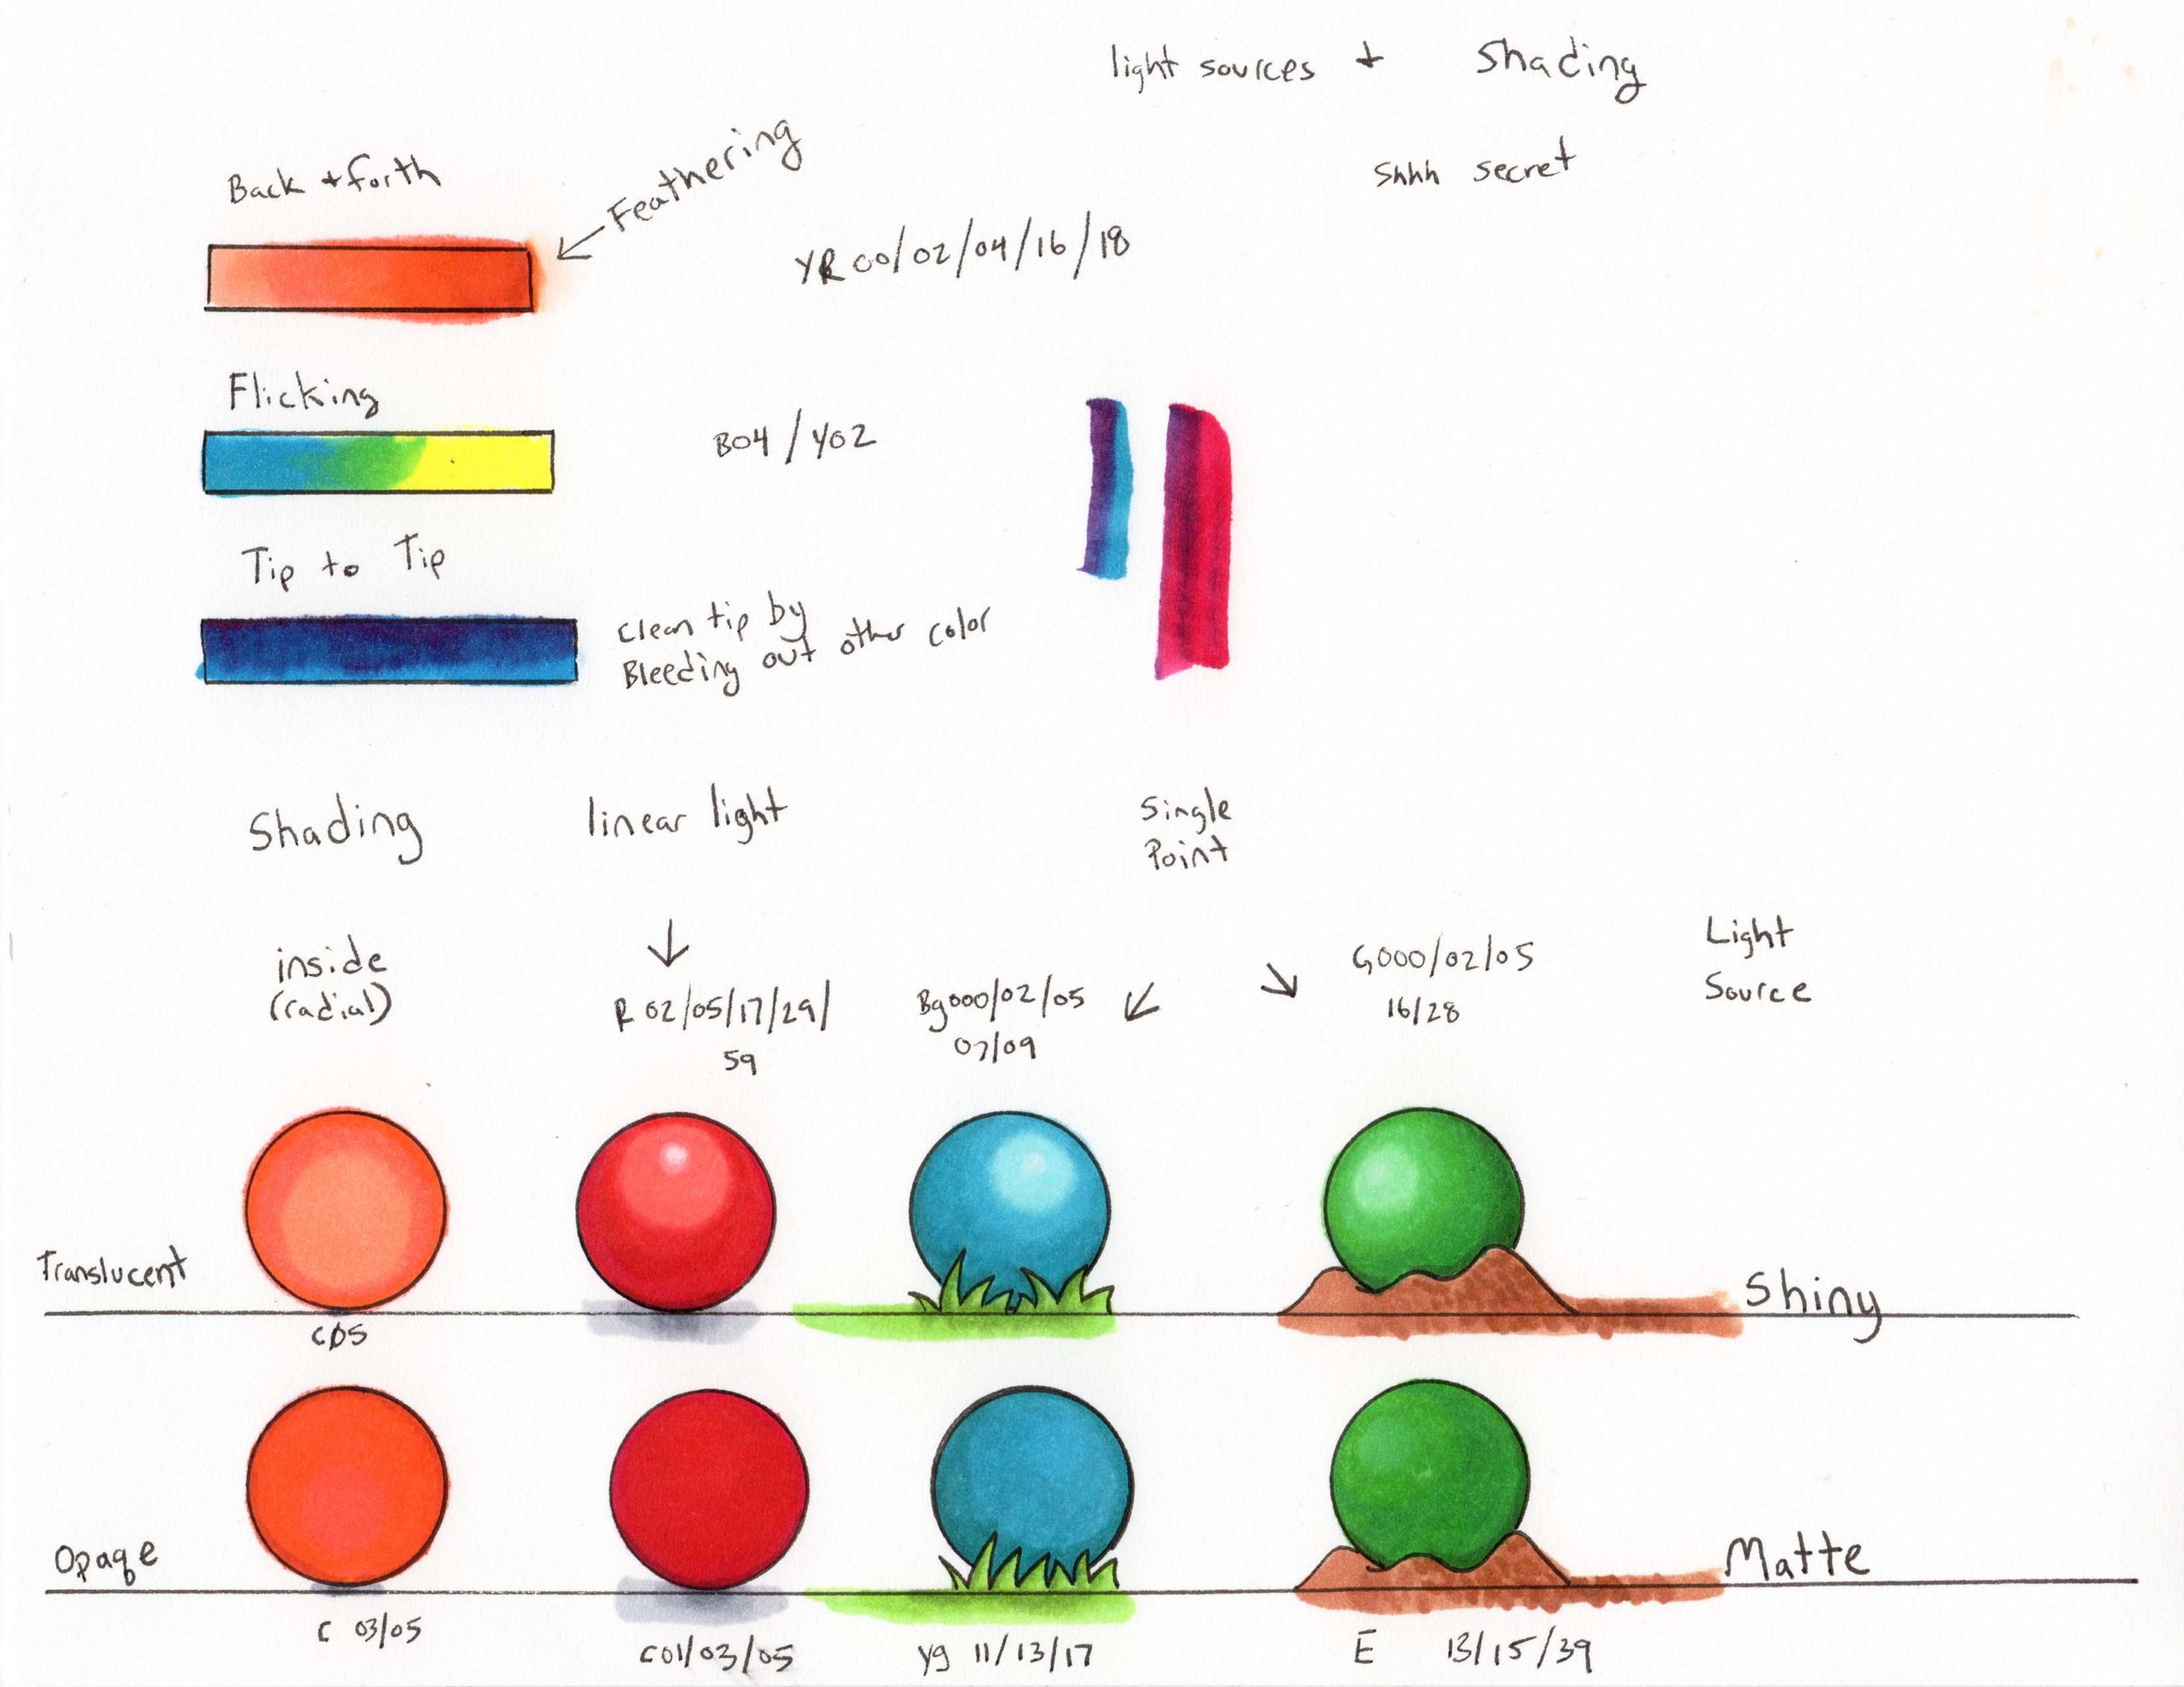 light sources + Shading
Shhh secret
Back + forth
Feathering
YR 00/02/04/16/18
Flicking
B04/Y02
Tip to Tip
Clean tip by
Bleeding out other color
Shading
linear light
Single
Point
inside
(radial)
R 02/05/17/29/
59
Bg000/02/05
07/09
G000/02/05
16/28
Light
Source
Translucent
Shiny
C05
Opaqe
Matte
C 03/05
C01/03/05
yg 11/13/17
E 13/15/39